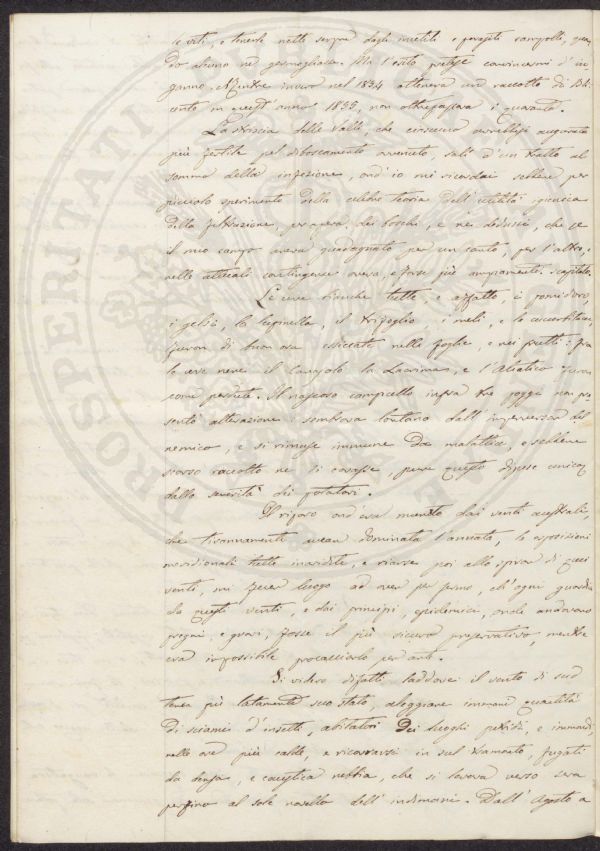 le viti, e tenerle nette sempre dagli inutili, e parassiti rampolli, quan
do abuno ne germogliasse. Ma l'esito pretese convincermi d'in
ganno. Mentre invero nel 1854 otteneva un raccolto di
cento in quest'anno 1855, non oltrepassava i quaranta.
La striscia delle Valli, che ciascuno avrebbe augurata
più fertile pel diboscamento avvenuto, salì d'un tratto al
sommo della infezione, ond'io mi ricordai sebbene per
piccolo sperimento della celebre teoria dell'utilità igienica
della filtrazione, per opera dei boschi, e ne dedussi, che se
il mio campo aveva guadagnato per un canto, per l'altro,
nelle attuali contingenze aveva, e forse più ampiamente scapitato.
Le uve bianche tutte, e affatto, i pomidoro,
i gelsi, la lupinella, il trifoglio, i meli, e le cucurbitacee,
furon di buon ora essiccate nelle foglie, e nei frutti: fra
le uve nere il Canajolo la Lacrima, e l'Aleatico furon
come perdute. Il nascoso campicello infra tre poggi non pre
sentò alterazione sembrava lontano dall'imperversar del
nemico, e si rimase immune da malattia, e sebbene
scarso raccolto ne si cavasse, pure questo dipese
dalla severità dei potatori.
Il riposo ond'era munito dai venti australi,
che tirannamente avean dominata l'annata, le esposizioni
meridionali tutte inaridite, e riarse poi allo spirar di quei
venti, mi fecer luogo ad aver per fermo, ch'ogni guardia
da questi venti, e dai principj epidemici, onde andavano
pregni, e gravi, fosse il più sicuro preservativo, mentre
era impossibile procacciarlo per arte.
Si videro difatti, laddove il vento di sud
tenea più latamente suo stato, aleggiare immane quantità
di sciami d'insetti, abitatori dei luoghi putridi, e immondi,
nelle ore più calde, e ricovrarsi in sul tramonto, fugati
da densa, e caustica nebbia, che si levava verso sera
perfino al sole novello dell'indimani. Dall'Agosto a
PROSPERITATI